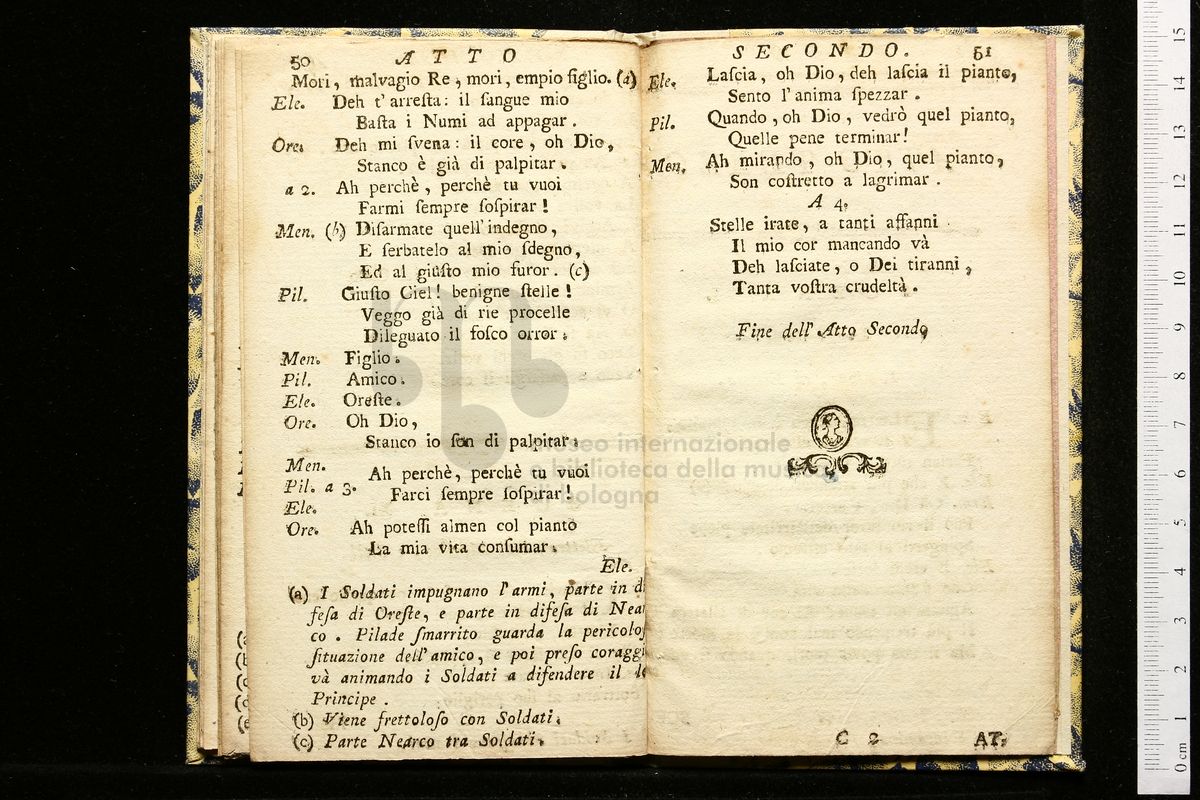 50 ATTO
Mori, malvagio Re, mori, empio figlio. (a)
Ele. Deh t'arreſta: il ſangue mio
Baſta i Numi ad appagar.
Ore. Deh mi ſvena: il core, oh Dio,
Stanco è già di palpitar.
a 2. Ah perchè, perchè tu vuoi
Farmi ſempre ſoſpirar!
Men. (b) Diſarmate quell'indegno,
E ſerbatelo al mio ſdegno,
Ed al giuſto mio furor. (c)
Pil. Giuſto Ciel! benigne ſtelle!
Veggo già di rie procelle
Dileguato il foſco orror.
Men. Figlio.
Pil. Amico.
Ele. Oreſte.
Ore. Oh Dio,
Stanco io ſon di palpitar.
Men.
Pil. a 3. Ah perchè, perchè tu vuoi
Ele. Farci ſempre ſoſpirar!
Ore. Ah poteſſi almen col pianto
La mia vita conſumar.
Ele.
(a) I Soldati impugnano l'armi, parte in di
feſa di Oreſte, e parte in difeſa di Near
co. Pilade ſmarrito guarda la pericoloſ
ſituazione dell'amico, e poi preſo coraggi
và animando i Soldati a difendere il lo
Principe.
(b) Viene frettoloſo con Soldati.
(c) Parte Nearco tra Soldati.
SECONDO. 51
Ele. Laſcia, oh Dio, deh laſcia il pianto,
Sento l'anima ſpezzar.
Pil. Quando, oh Dio, vedrò quel pianto,
Quelle pene terminar!
Men. Ah mirando, oh Dio, quel pianto,
Son coſtretto a lagrimar.
A 4.
Stelle irate, a tanti affanni
Il mio cor mancando và
Deh laſciate, o Dei tiranni,
Tanta voſtra crudeltà.
Fine dell'Atto Secondo
C 2 AT.
museo internazionale
e biblioteca della musica
di bologna
0 cm 1 2 3 4 5 6 7 8 9 10 11 12 13 14 15